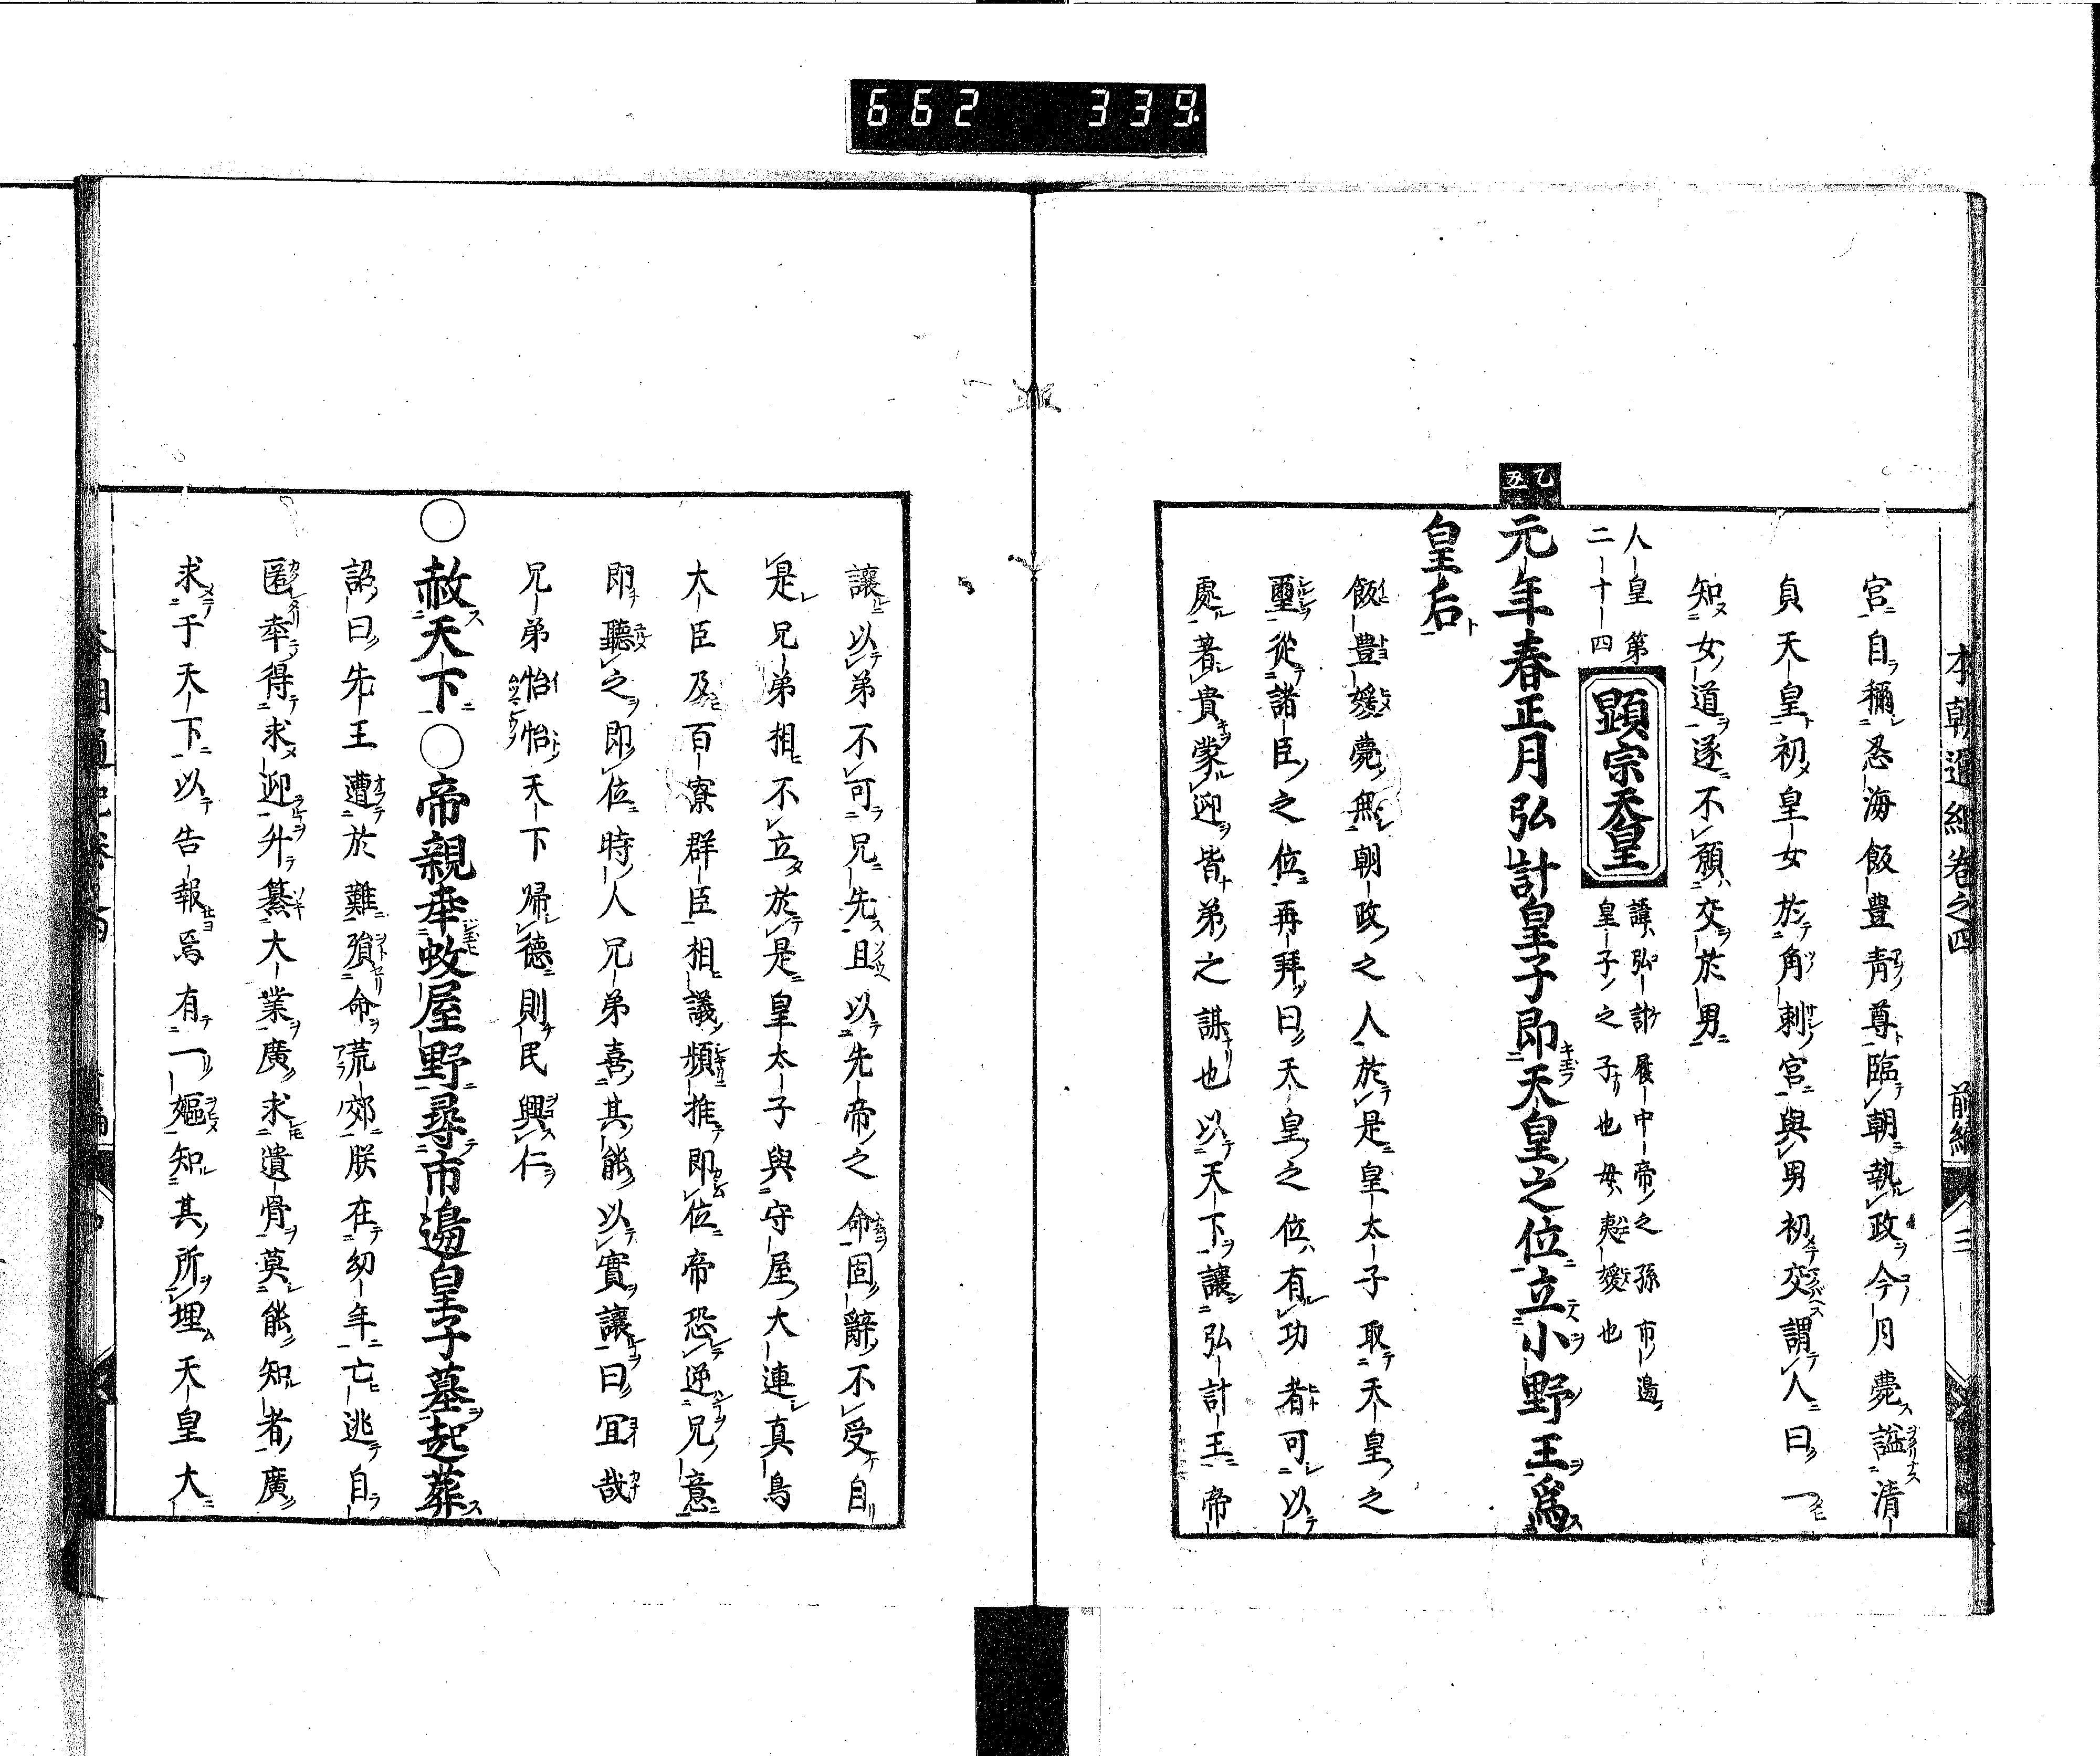 662 339
本朝通紀卷之四 前編 三
宮自稱忍海飯豊青尊臨朝執政今月薨謚清
貞天皇初皇女於角刺宮與男初交謂人曰一
知女道遂不願交於男
人皇第
二十四
顕宗天皇
諱弘計履中帝之孫市邉
皇子之子也母夷媛也
乙丑
元年春正月弘計皇子即天皇之位立小野王爲
皇后
飯豊媛薨無朝政之人於是皇太子取天皇之
璽從諸臣之位再拜曰天皇之位有功者可以
處著貴蒙迎皆弟之謀也以天下讓弘計王帝
讓以弟不可兄先且以先帝之命固辭不受自
是兄弟相不立於是皇太子與守屋大連真鳥
大臣及百寮群臣相議頻推即位帝恐逆兄意
即聽之即位時人兄弟喜其能以實讓曰宜哉
兄弟怡怡天下歸德則民興仁
○赦天下○帝親幸蚊屋野尋市邉皇子墓起葬
詔曰先王遭於難殞命荒郊朕在幼年亡逃自
匿幸得求迎升纂大業廣求遺骨莫能知者廣
求于天下以告報焉有一嫗知其所埋天皇大